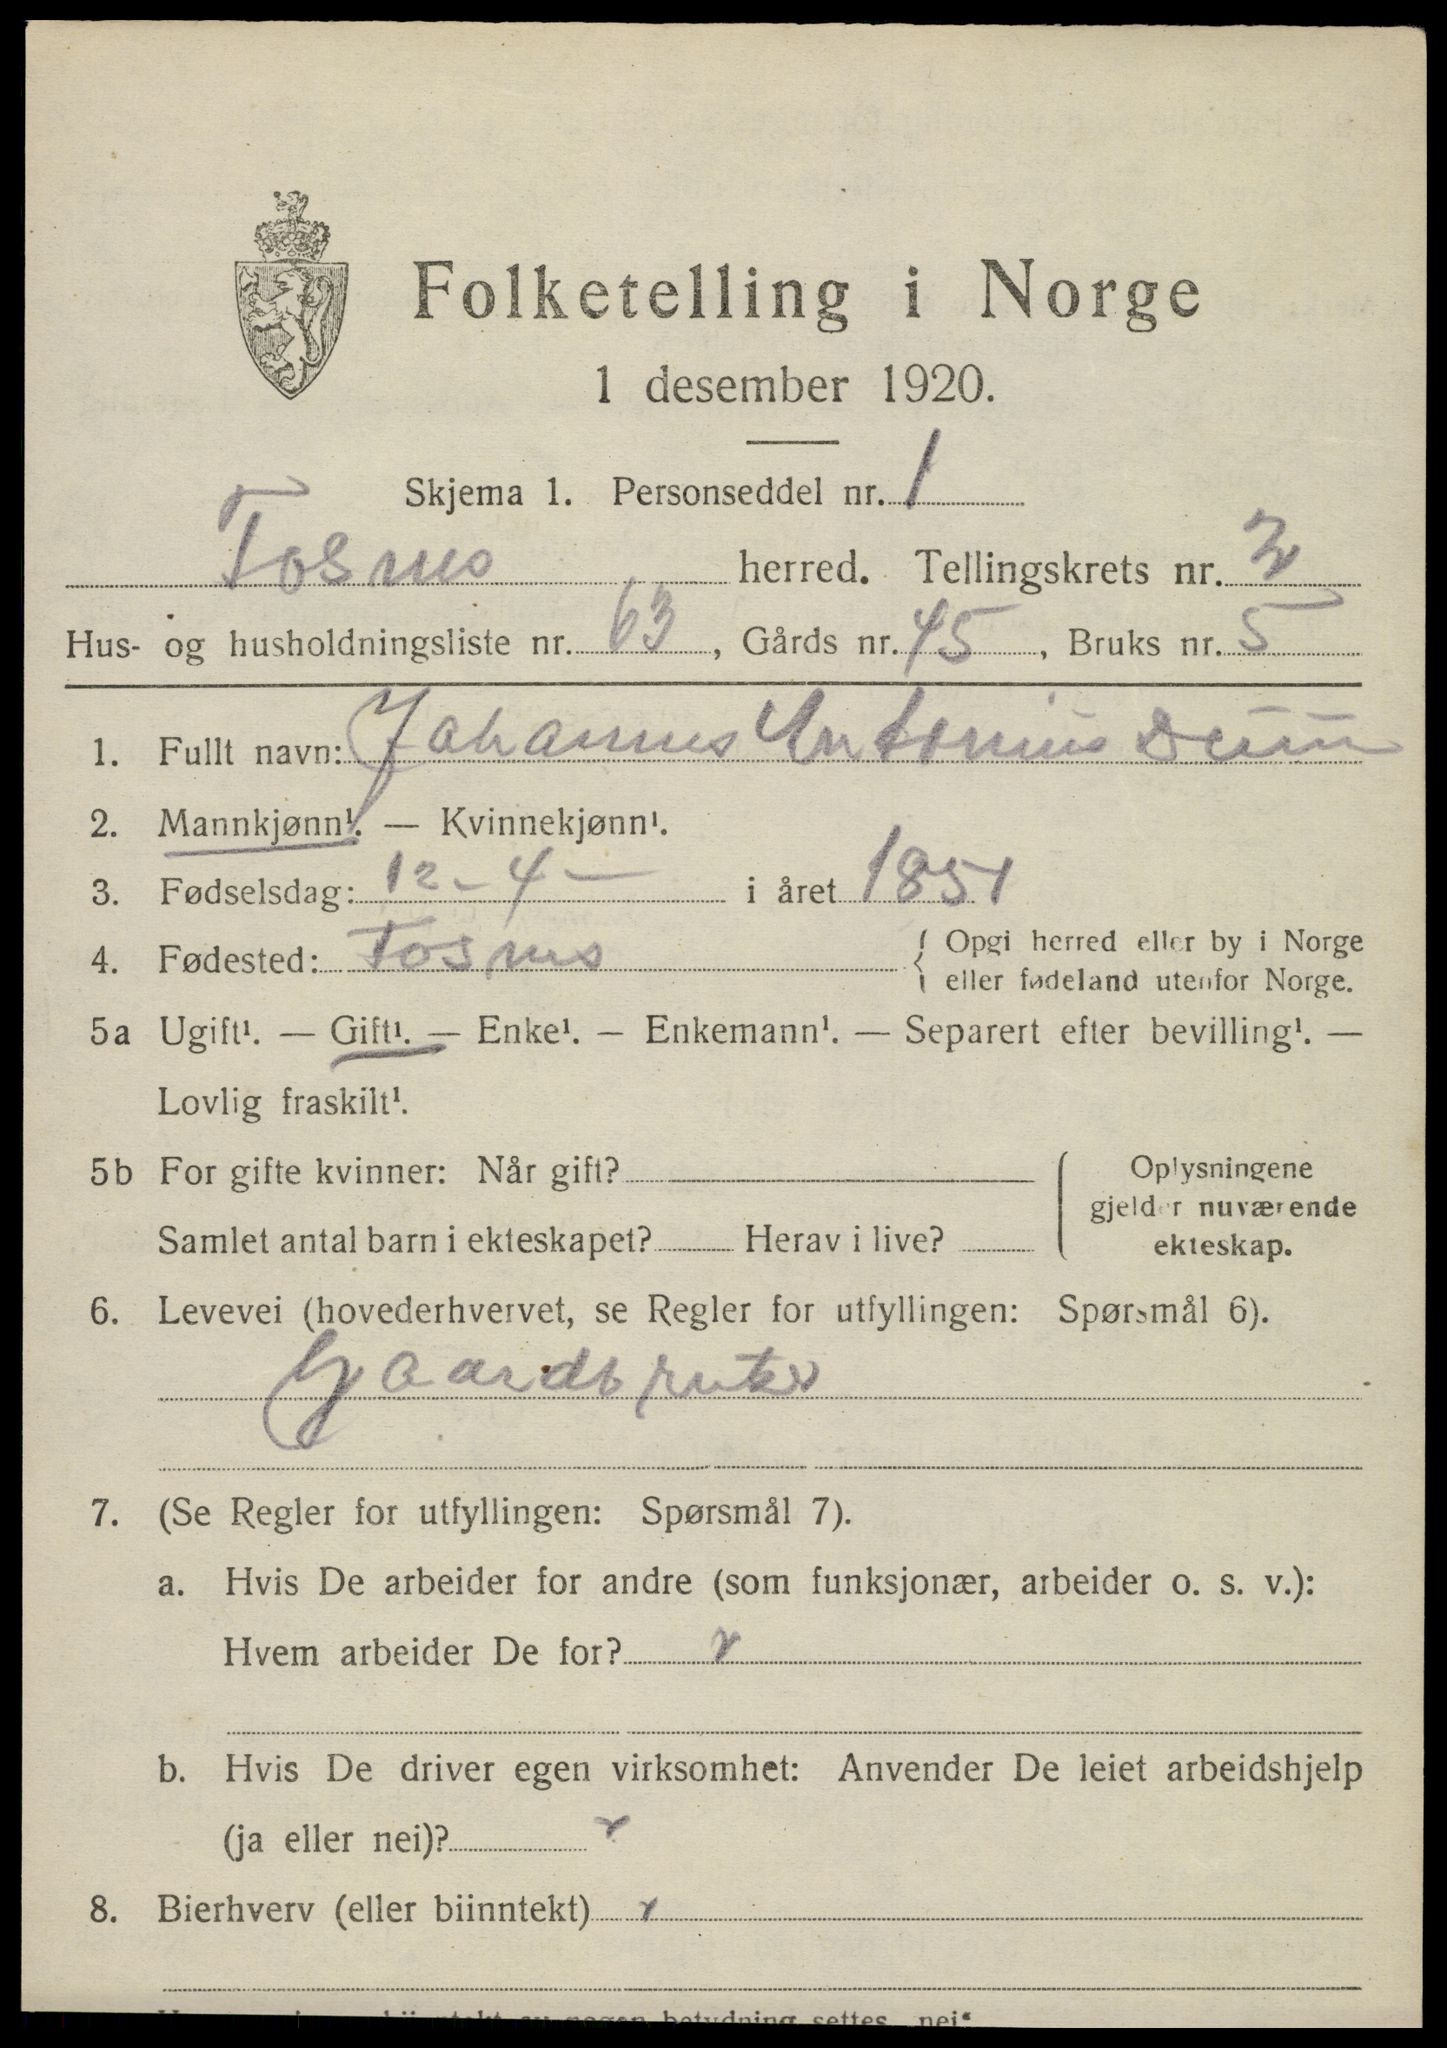 Folketelling i Norge
1 desember 1920.
Skjema 1. Personseddel nr. 1
Fosnes herred. Tellingskrets nr. 2
Hus- og husholdningsliste nr. 63, Gårds nr. 45, Bruks nr. 5
1. Fullt navn: Johannes Antonius Duun
2. Mannkjønn¹. — Kvinnekjønn¹.
3. Fødselsdag: 12 - 4 — i året 1851
4. Fødested: Fosnes { Opgi herred eller by i Norge
eller fødeland utenfor Norge.
5a Ugift¹. — Gift¹. — Enke¹. — Enkemann¹. — Separert efter bevilling¹. —
Lovlig fraskilt¹.
5b For gifte kvinner: Når gift?
Samlet antal barn i ekteskapet? Herav i live?
Oplysningene
gjelder nuværende
ekteskap.
6. Levevei (hovederhvervet, se Regler for utfyllingen: Spørsmål 6).
Gaardbruker
7. (Se Regler for utfyllingen: Spørsmål 7).
a. Hvis De arbeider for andre (som funksjonær, arbeider o. s. v.):
Hvem arbeider De for?
b. Hvis De driver egen virksomhet: Anvender De leiet arbeidshjelp
(ja eller nei)?
8. Bierhverv (eller biinntekt)